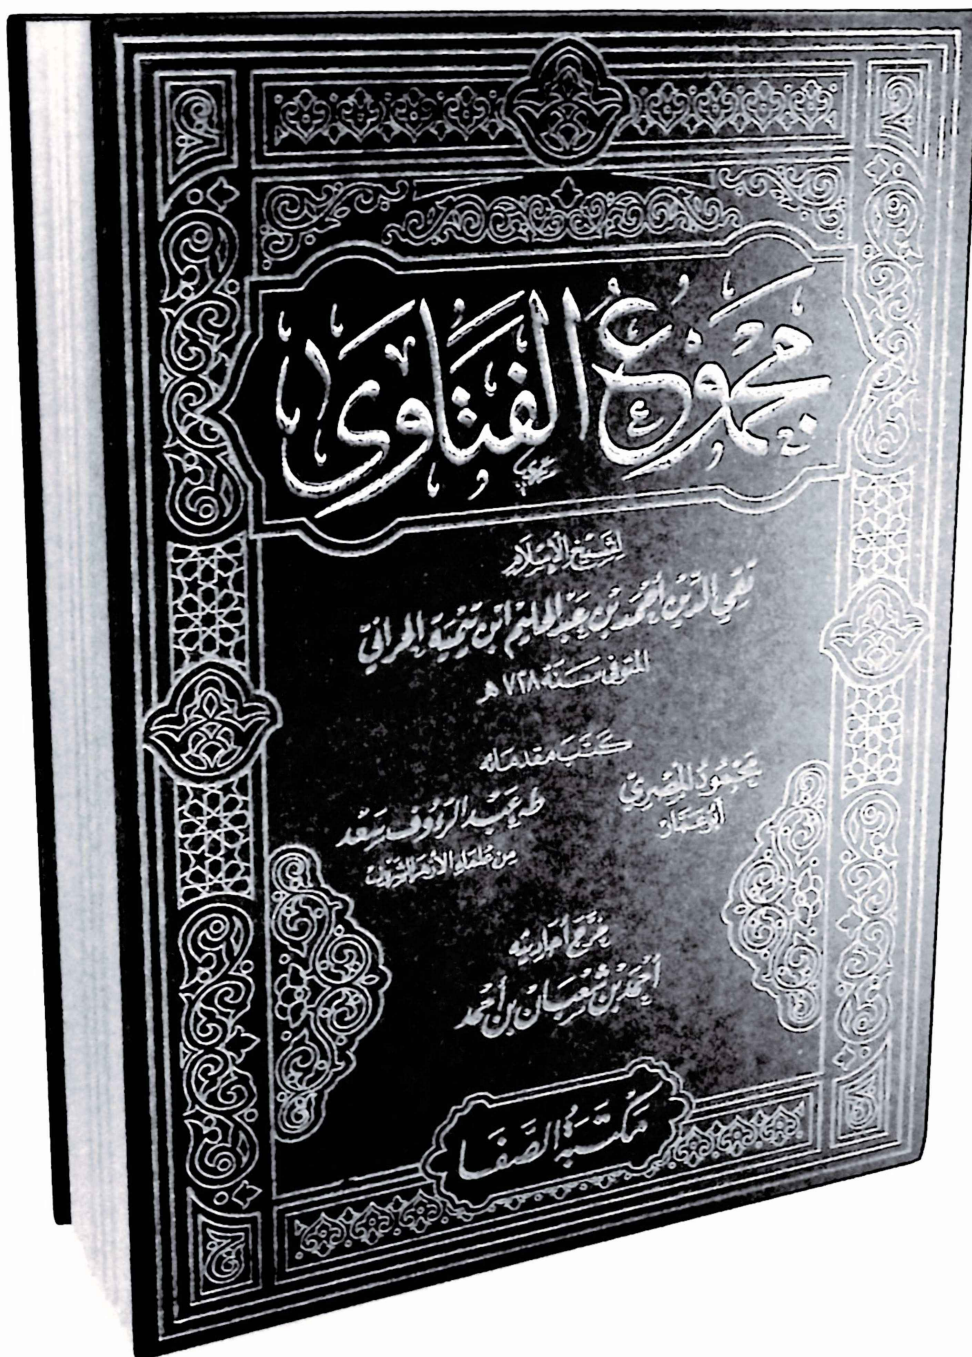 مجموع الفتاوى
لشيخ الإسلام
تقي الدين أحمد بن عبد الحليم ابن تيمية الحراني
المتوفى سنة ٧٢٨ هـ
كتب مقدماته
محمود المصري
أبو عمار
طه عبد الرؤوف سعد
من علماء الأزهر الشريف
خرج أحاديثه
أحمد بن شعبان بن أحمد
مكتبة الصفا